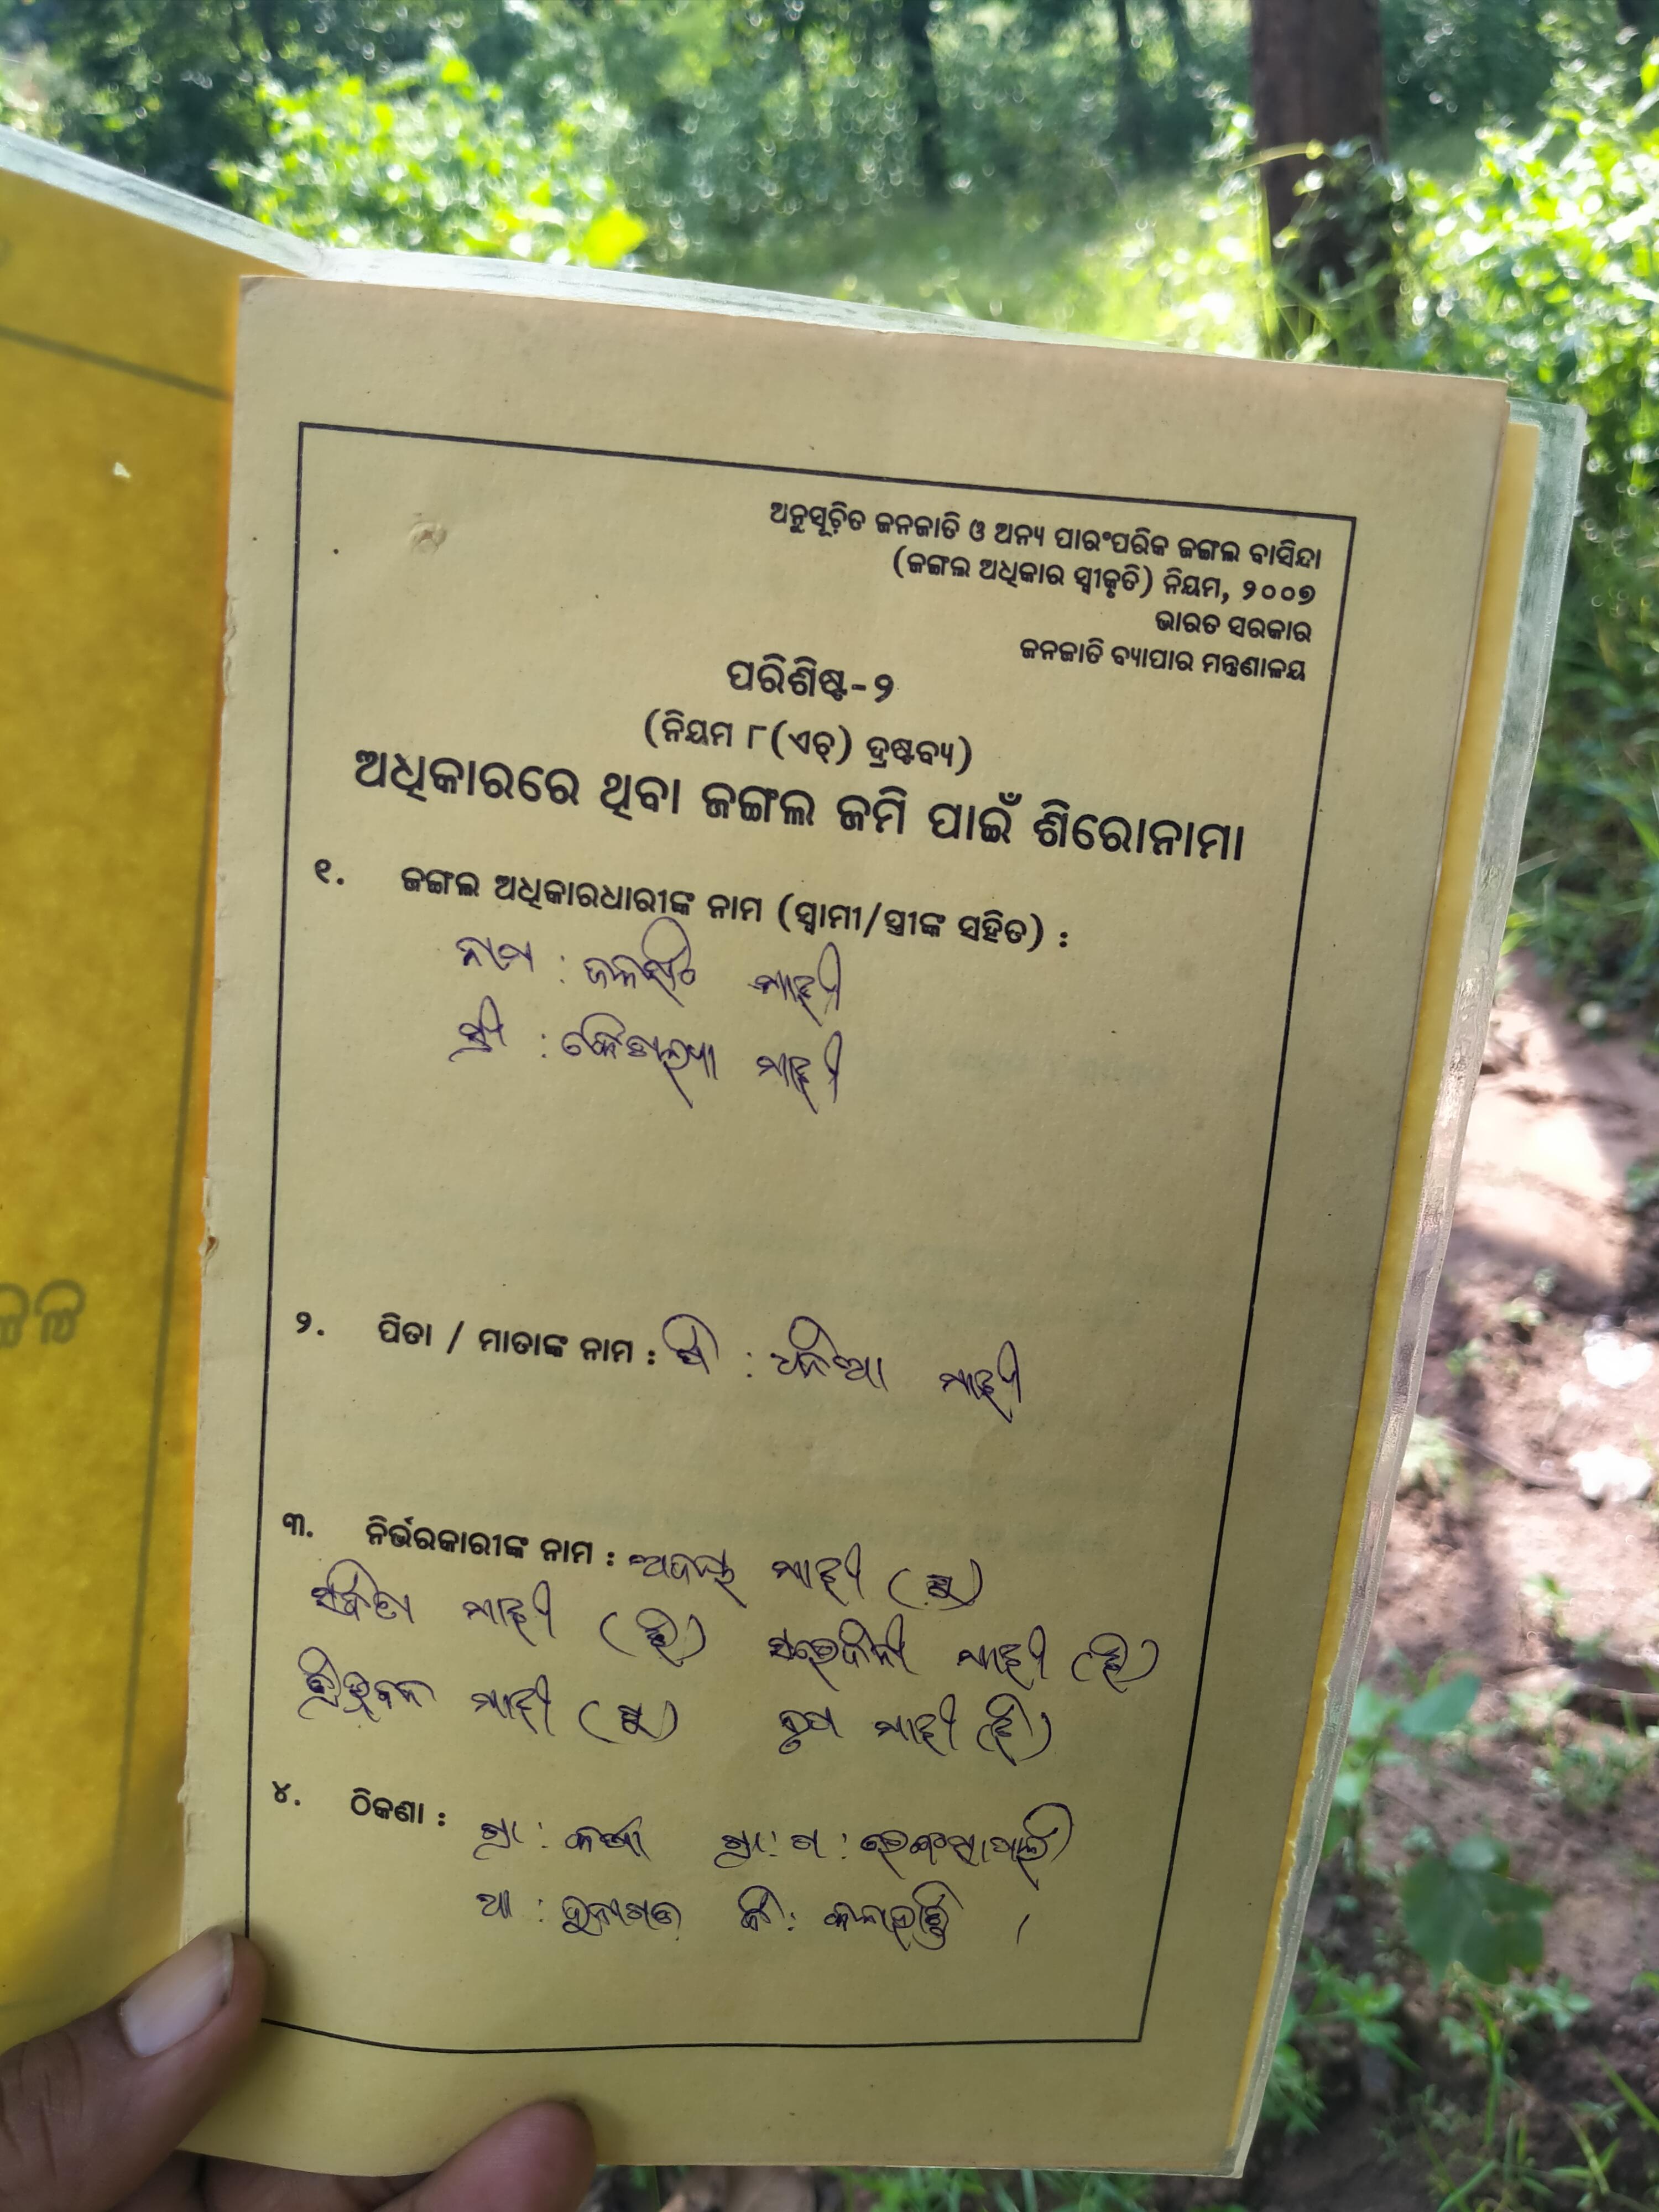 ଅନୁସୂଚିତ ଜନଜାତି ଓ ଅନ୍ୟ ପାରଂପରିକ ଜଙ୍ଗଲ ବାସିନ୍ଦା
(ଜଙ୍ଗଲ ଅଧିକାର ସ୍ୱୀକୃତି) ନିୟମ, ୨୦୦୭
ଭାରତ ସରକାର
ଜନଜାତି ବ୍ୟାପାର ମନ୍ତ୍ରଣାଳୟ
ପରିଶିଷ୍ଟ-୨
(ନିୟମ ୮(ଏଚ୍) ଦ୍ରଷ୍ଟବ୍ୟ)
ଅଧିକାରରେ ଥିବା ଜଙ୍ଗଲ ଜମି ପାଇଁ ଶିରୋନାମା
୧. ଜଙ୍ଗଲ ଅଧିକାରଧାରୀଙ୍କ ନାମ (ସ୍ୱାମୀ/ସ୍ତ୍ରୀଙ୍କ ସହିତ) :
ନାମ : ମାଝୀ
ସ୍ତ୍ରୀ : ମାଝୀ
୨. ପିତା / ମାତାଙ୍କ ନାମ : ପି : ଧନିଆ ମାଝୀ
୩. ନିର୍ଭରକାରୀଙ୍କ ନାମ : ମାଝୀ (ପୁ)
ସବିତା ମାଝୀ (ଝି) ସରୋଜିନୀ ମାଝୀ (ଝି)
ତ୍ରିଭୁବନ ମାଝୀ (ପୁ) ମାଝୀ (ଝି)
୪. ଠିକଣା : ଗ୍ରା : ଗ୍ରା : ପ :
ଥା : ଜୁନାଗଡ ଜି : କଳାହାଣ୍ଡି ।